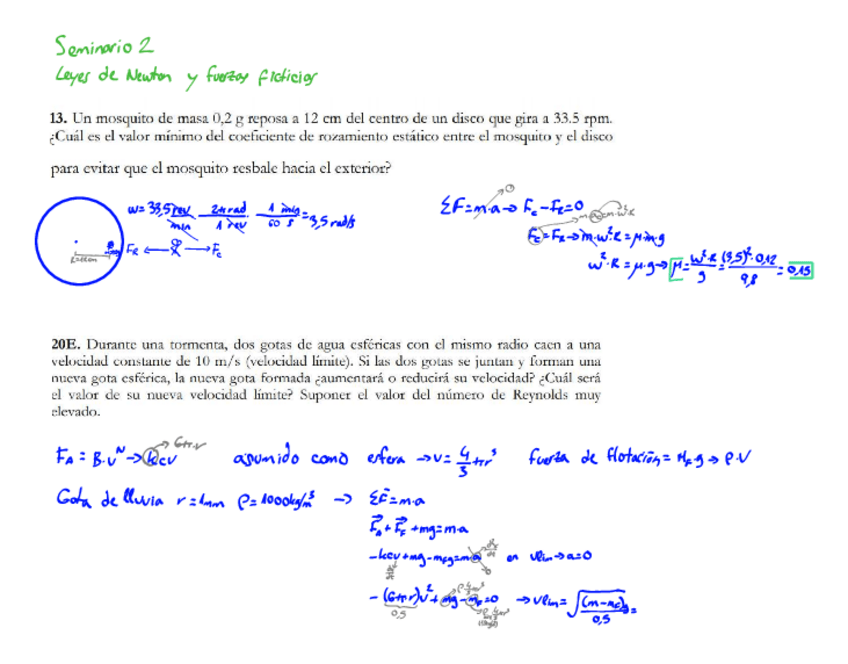 Seminario 2
Leyes de Newton y fuerzas ficticias
13. Un mosquito de masa 0,2 g reposa a 12 cm del centro de un disco que gira a 33.5 rpm.
¿Cuál es el valor mínimo del coeficiente de rozamiento estático entre el mosquito y el disco
para evitar que el mosquito resbale hacia el exterior?
ω = 33,5 rev/min · 2π rad/1 rev · 1 min/60 s = 3,5 rad/s
ΣF = m·a → Fc - FR = 0
FR ← → Fc
Fc = FR → m·ω²·R = μ·m·g
ω²·R = μ·g → μ = ω²·R/g = (3,5)²·0,12/9,8 = 0,15
20E. Durante una tormenta, dos gotas de agua esféricas con el mismo radio caen a una
velocidad constante de 10 m/s (velocidad límite). Si las dos gotas se juntan y forman una
nueva gota esférica, la nueva gota formada ¿aumentará o reducirá su velocidad? ¿Cuál será
el valor de su nueva velocidad límite? Suponer el valor del número de Reynolds muy
elevado.
6πr
FA = B·v^N → k c v asumido como esfera → v = 4/3 πr³ fuerza de flotación = Mf·g → ρ·V
Gota de lluvia r = 1mm ρ = 1000kg/m³ → ΣF = m·a
FA + Ff + mg = m·a
-kcv + mg - mfg = m·a en vlim → a = 0
-(6πr)v² + mg - mf = 0 → vlim = √((m - mf)g/0,5) =
0,5